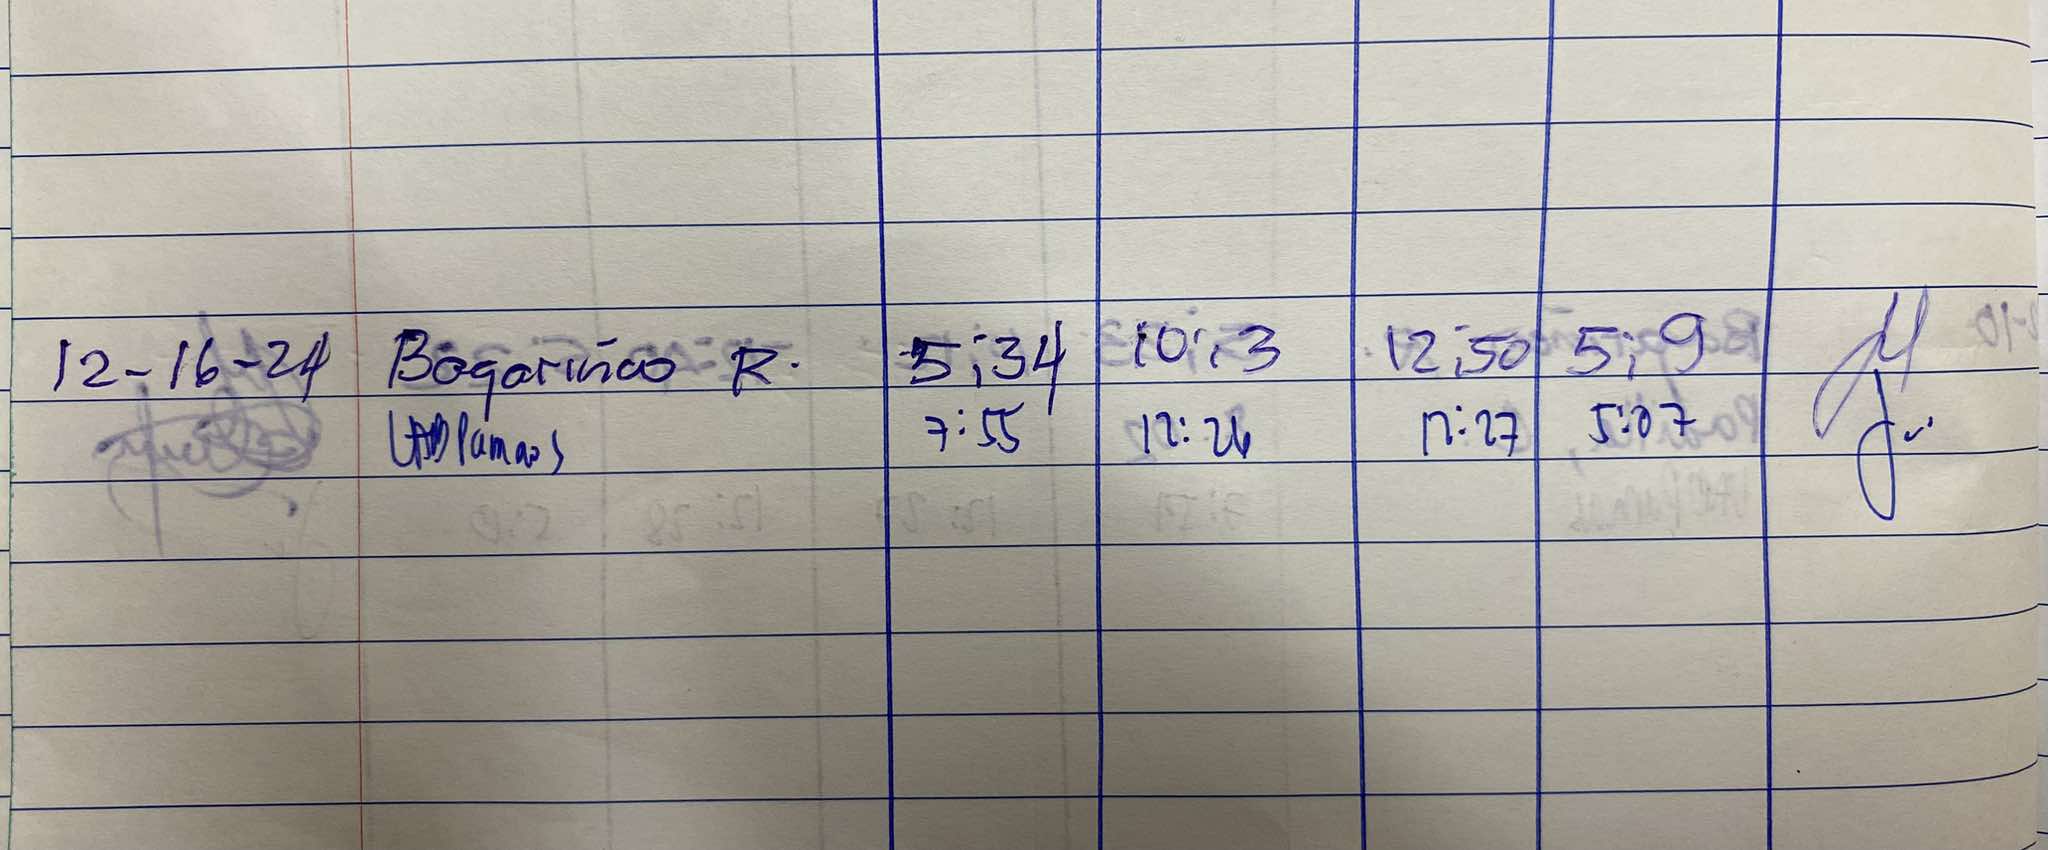 12-16-24 Bogariñao R. 5;34 10;3 12;50 5;9
7:55 12:26 12:27 5:07